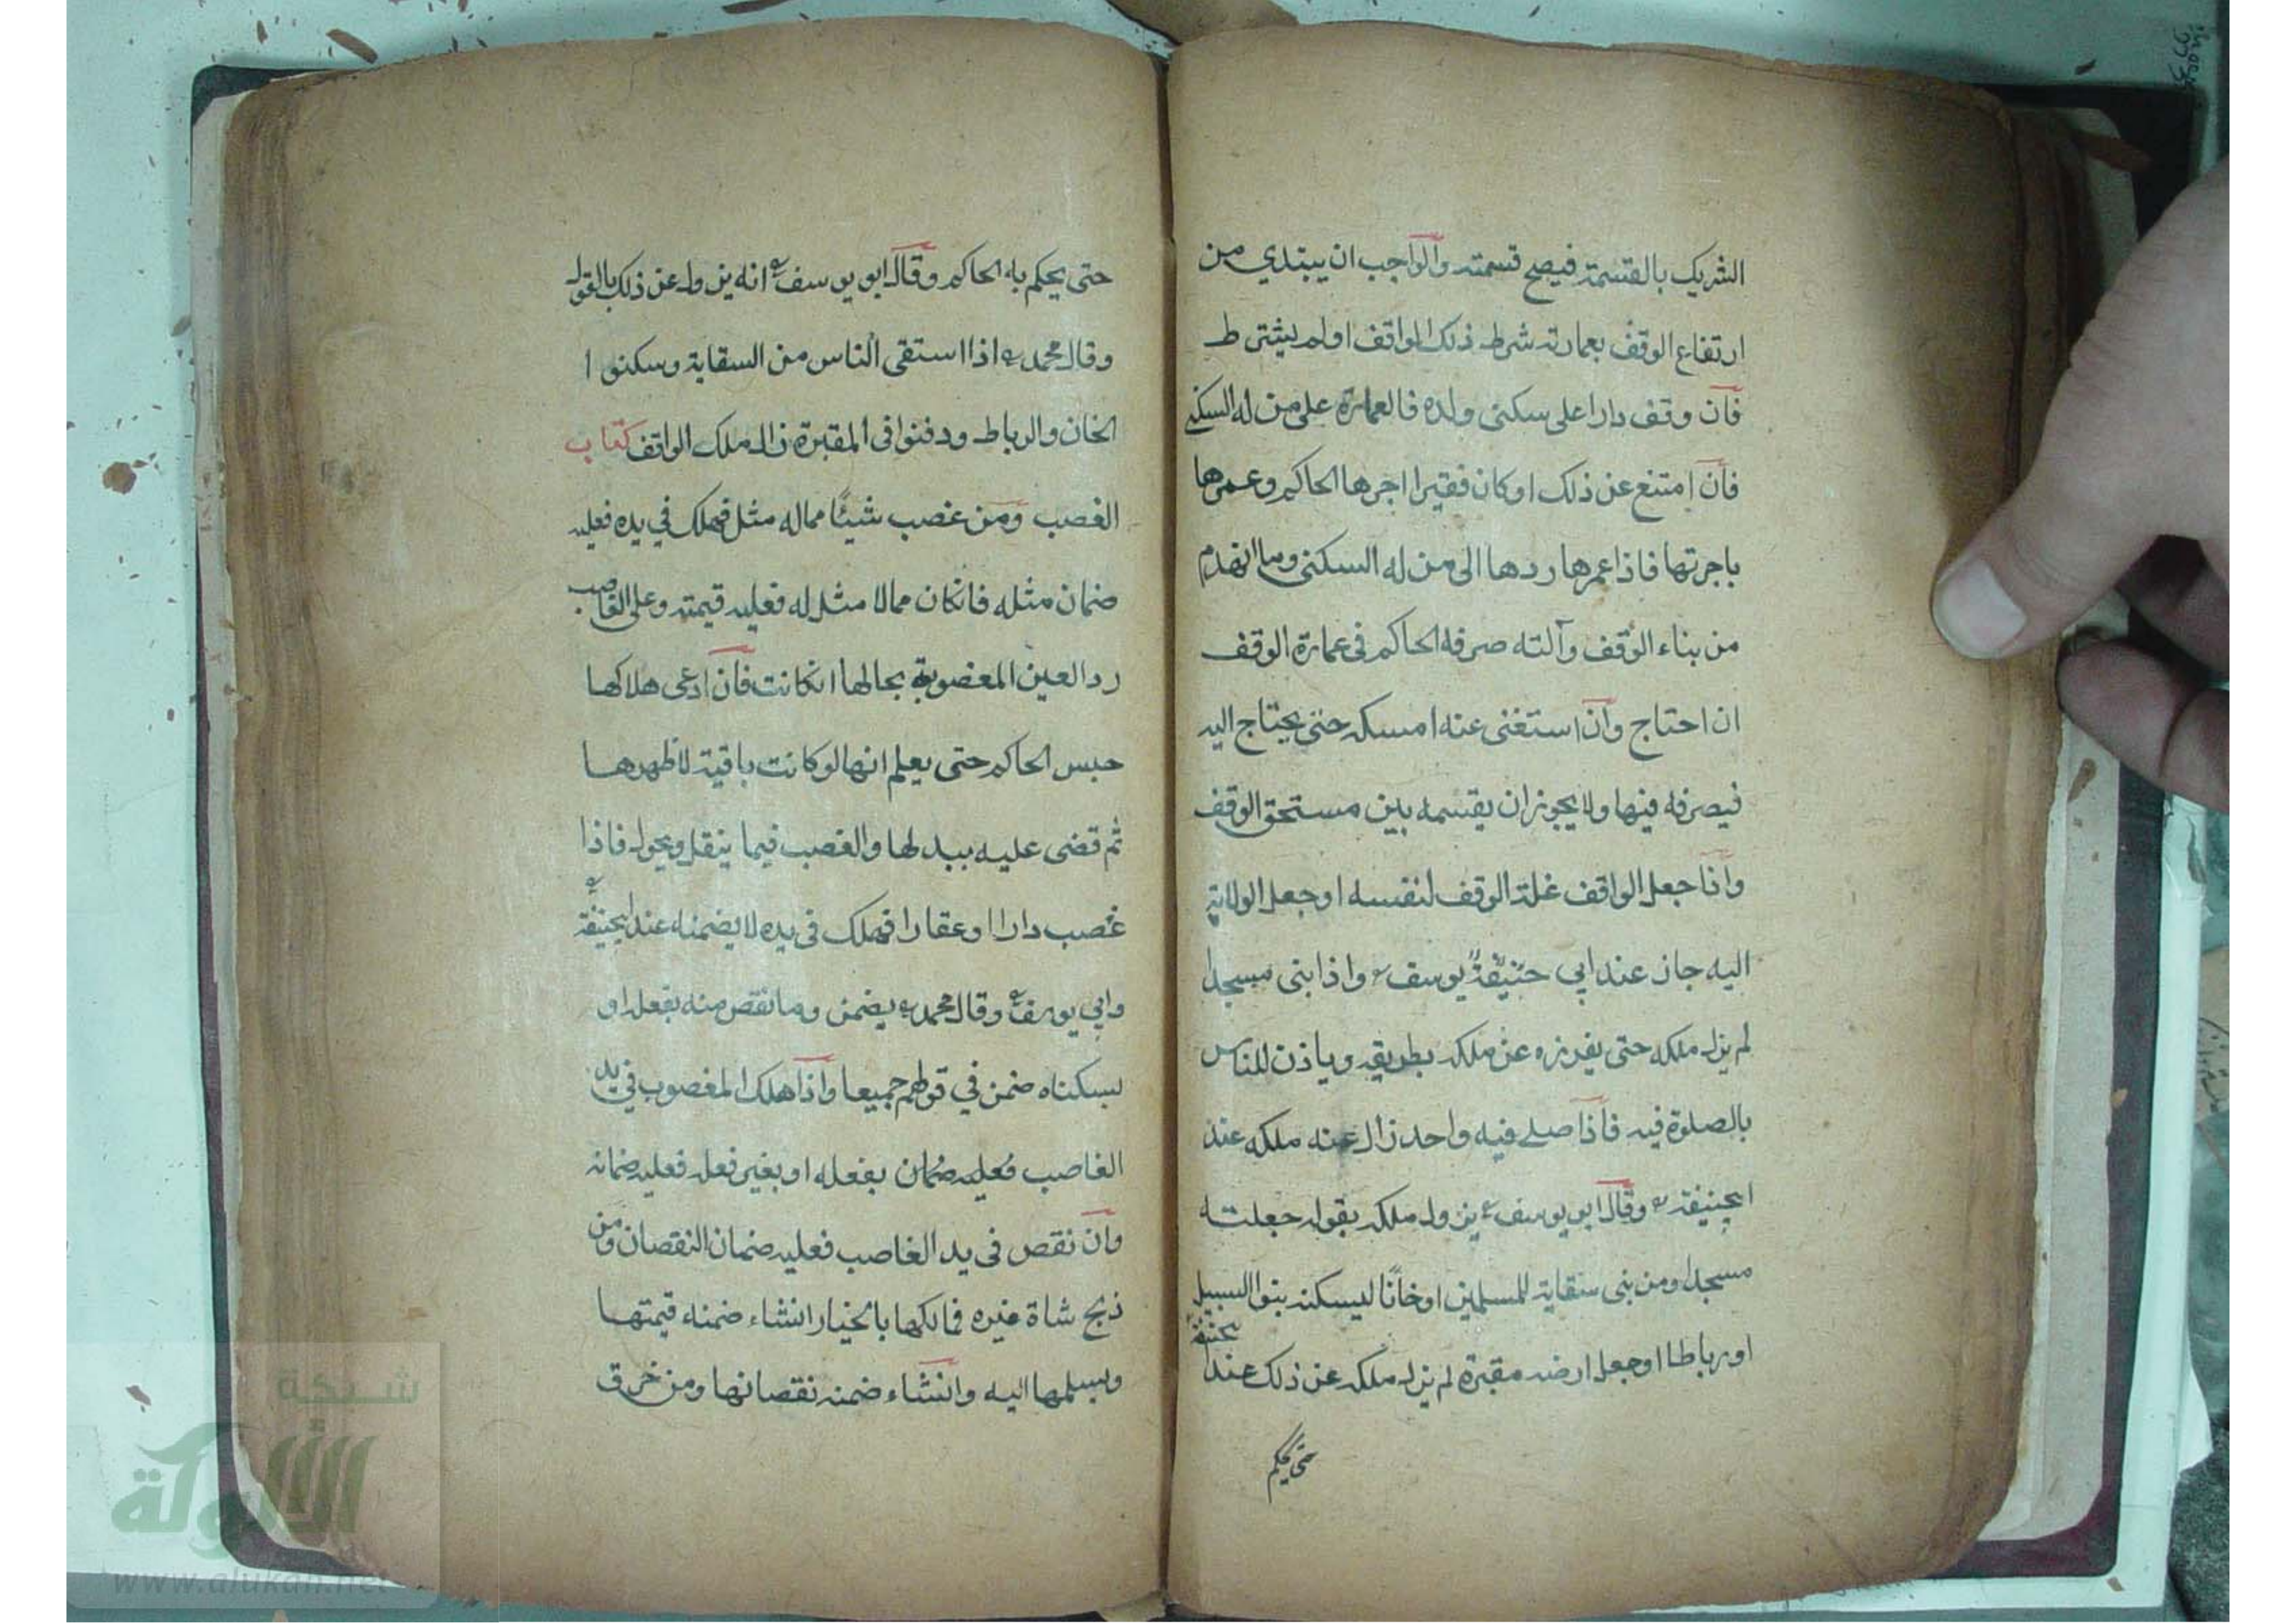 الشريك بالقسمة فيصح قسمته والواجب ان يبتدي من
ارتفاع الوقف بعمارته شرط ذلك الواقف او لم يشترط
فان وقف دارا على سكنى ولده فالعمارة على من له السكنى
فان امتنع عن ذلك او كان فقيرا اجرها الحاكم وعمرها
باجرتها فاذا عمرها ردها الى من له السكنى وما انهدم
من بناء الوقف وآلته صرفه الحاكم فى عمارة الوقف
ان احتاج وان استغنى عنه امسكه حتى يحتاج اليه
فيصرفه فيها ولا يجوز ان يقسمه بين مستحق الوقف
واذا جعل الواقف غلة الوقف لنفسه او جعل الولاية
اليه جاز عند ابي حنيفة يوسف واذا بنى مسجدا
لم يزل ملكه حتى يفرزه عن ملكه بطريقه وياذن للناس
بالصلوة فيه فاذا صلى فيه واحد زال عنه ملكه عند
ابحنيفة وقال ابو يوسف يزول ملكه بقوله جعلته
مسجدا ومن بنى سقاية للمسلمين او خانا ليسكنه بنوا السبيل
او رباطا او جعل ارضه مقبرة لم يزل ملكه عن ذلك عند ابحنيفة
حتى يحكم
حتى يحكم به الحاكم وقال ابو يوسف انه يزول عن ذلك بالقول
وقال محمد اذا استقى الناس من السقاية وسكنوا
الخان والرباط ودفنوا فى المقبرة زال ملك الواقف كتاب
الغصب ومن غصب شيئا مما له مثل فهلك في يده فعليه
ضمان مثله فانكان مما لا مثل له فعليه قيمته وعلى الغاصب
رد العين المغصوبة بحالها انكانت فان ادعى هلاكها
حبس الحاكم حتى يعلم انها لو كانت باقية لاظهرها
ثم قضى عليه ببدلها والغصب فيما ينقل ويحول فاذا
غصب دارا او عقارا فهلك فى يده لا يضمنه عند ابحنيفة
وابي يوسف وقال محمد يضمن وما نقص منه بفعله او
بسكناه ضمن في قولهم جميعا واذا هلك المغصوب في يد
الغاصب فعليه ضمان بفعله او بغير فعله فعليه ضمانه
وان نقص فى يد الغاصب فعليه ضمان النقصان ومن
ذبح شاة غيره فمالكها بالخيار انشاء ضمنه قيمتها
ويسلمها اليه وانشاء ضمنه نقصانها ومن خرق
شبكة
الألوكة
www.alukah.net